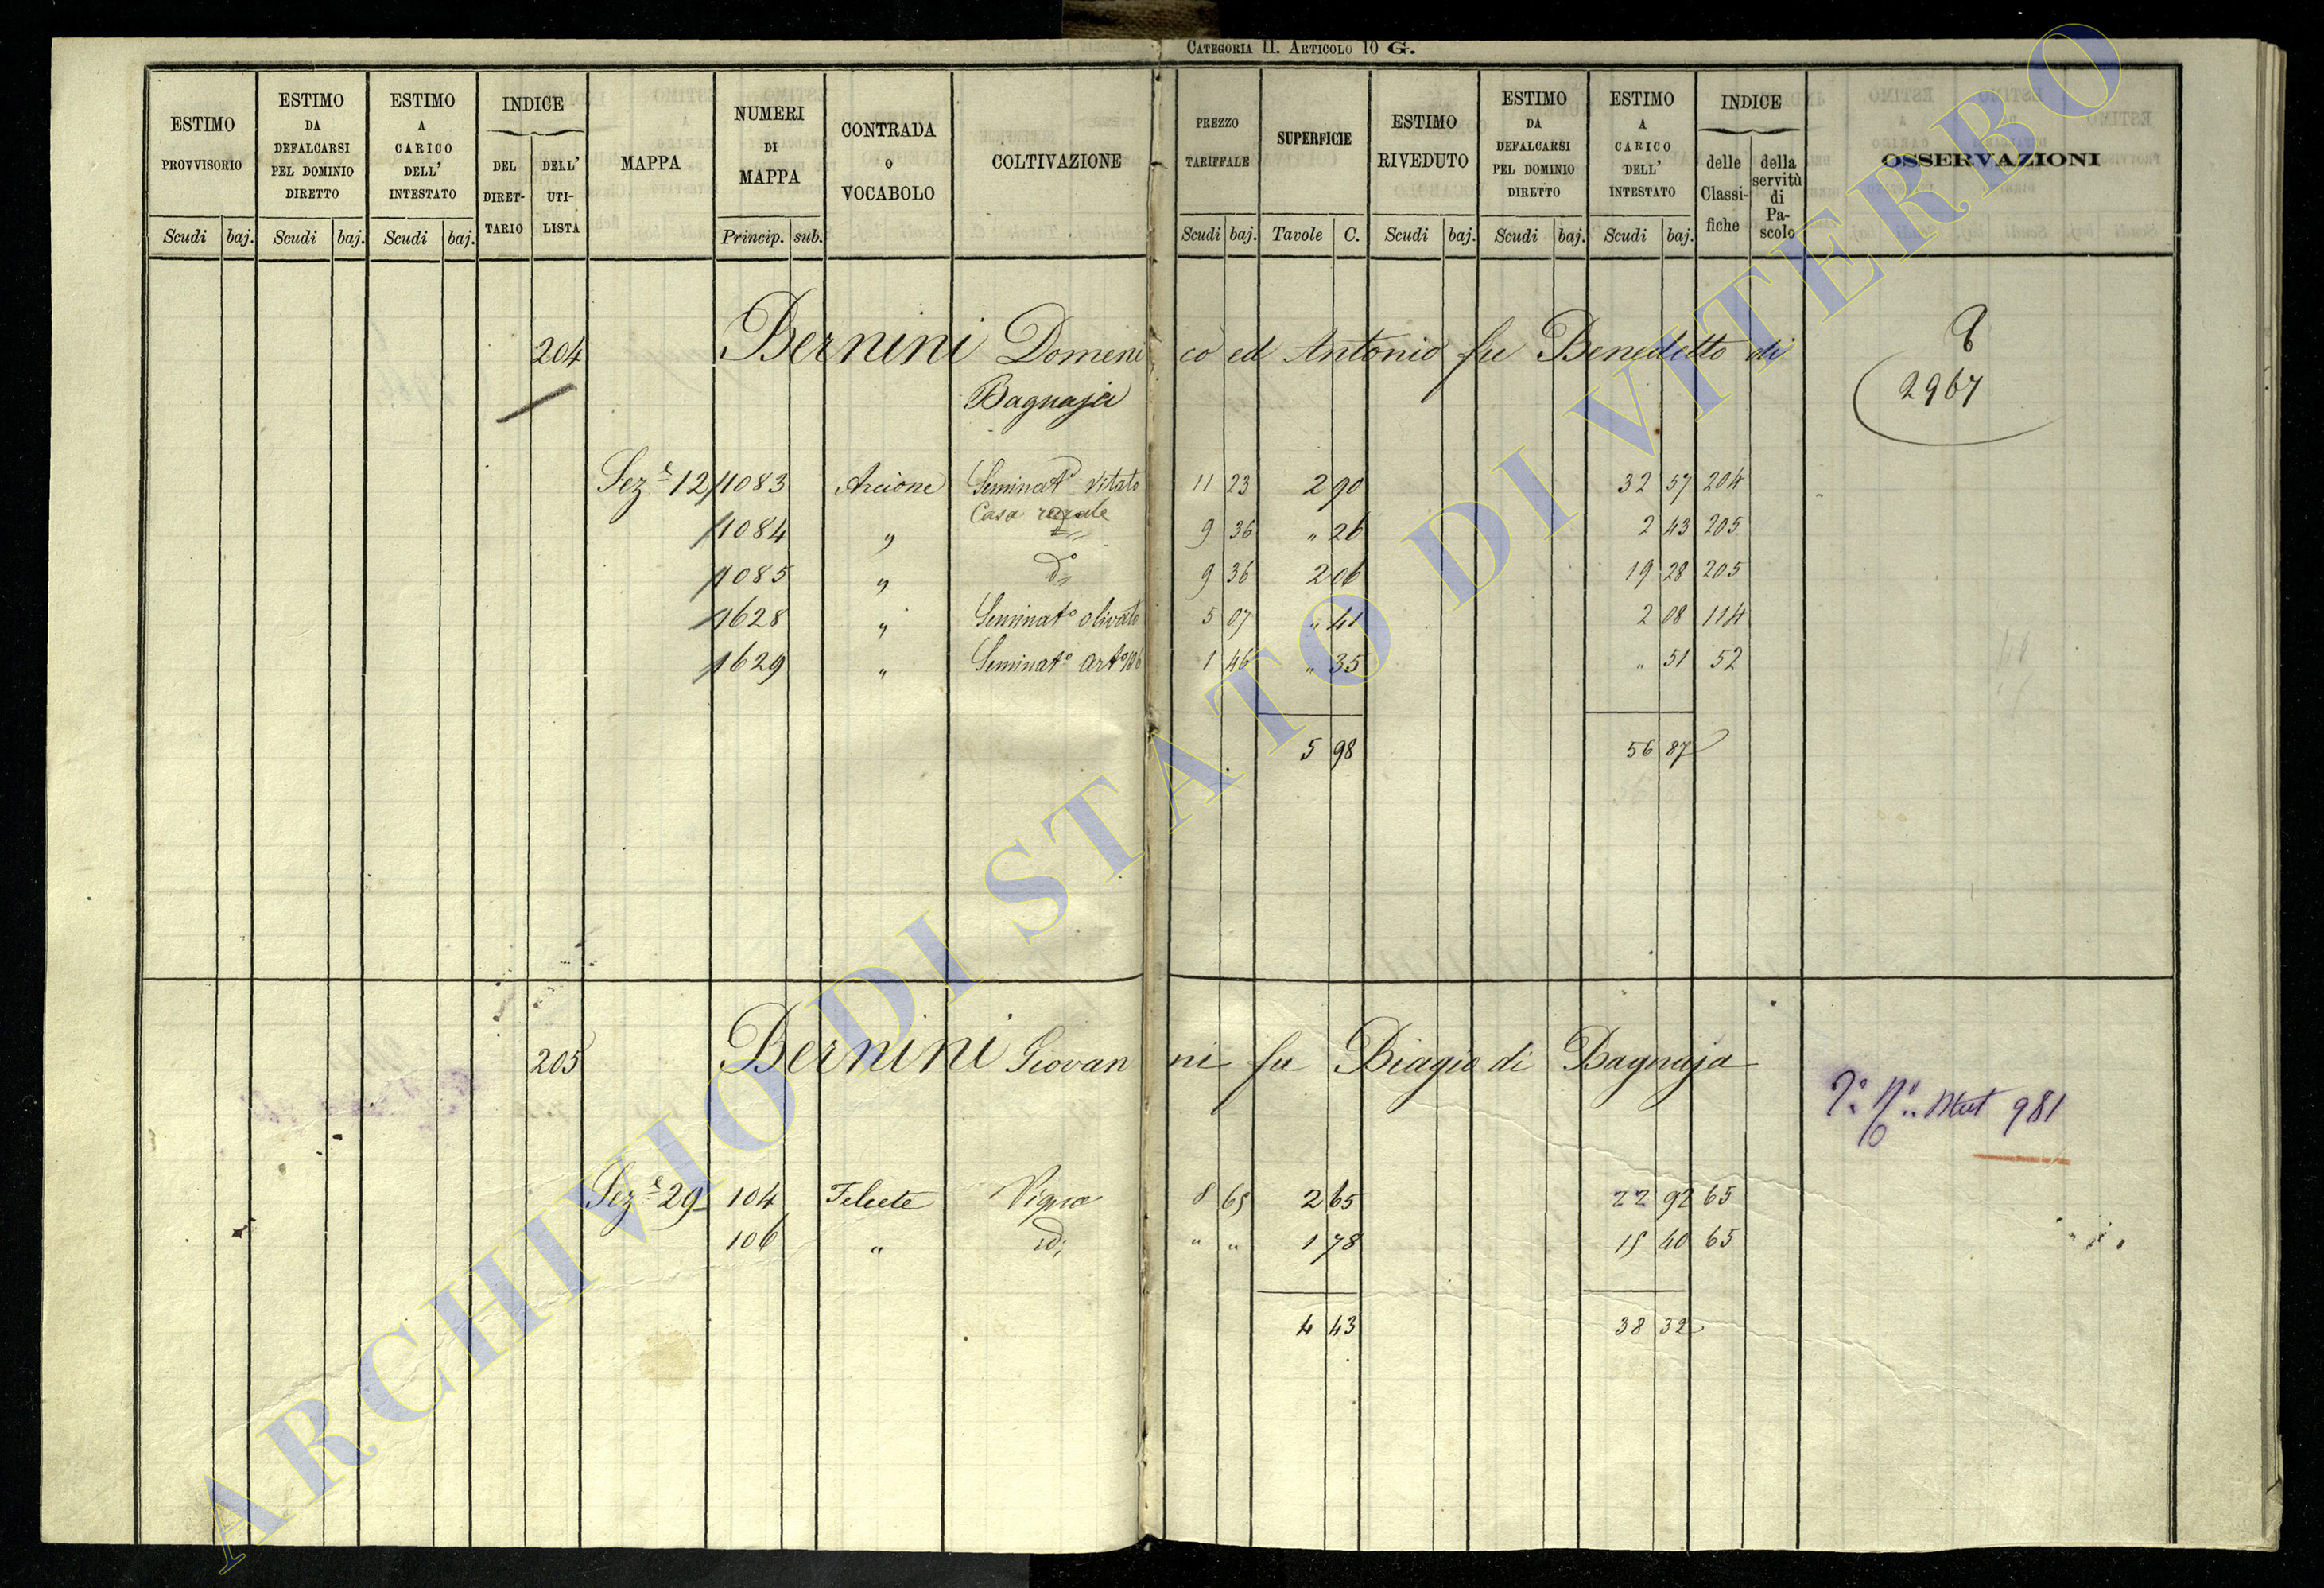 CATEGORIA II. ARTICOLO 10 G.
ESTIMO PROVVISORIO Scudi baj.
ESTIMO DA DEFALCARSI PEL DOMINIO DIRETTO Scudi baj.
ESTIMO A CARICO DELL' INTESTATO Scudi baj.
INDICE DEL DIRET-TARIO DELL' UTI-LISTA
MAPPA
NUMERI DI MAPPA Princip. sub.
CONTRADA O VOCABOLO
COLTIVAZIONE
PREZZO TARIFFALE Scudi baj.
SUPERFICIE Tavole C.
ESTIMO RIVEDUTO Scudi baj.
ESTIMO DA DEFALCARSI PEL DOMINIO DIRETTO Scudi baj.
ESTIMO A CARICO DELL' INTESTATO Scudi baj.
INDICE delle Classi-fiche della servitù di Pa-scolo
OSSERVAZIONI
204 Bernini Domenico ed Antonio fu Benedetto di
Bagnaja
2967
Sez.e 12 1083 Arcione Seminat.o Vitato 11 23 2 90 32 57 204
Casa rurale
1084 " 9 36 " 26 2 43 205
1085 " d.o 9 36 2 06 19 28 205
1628 " Seminat.o olivato 5 07 " 41 2 08 114
1629 " Seminat.o 1 46 " 35 " 51 52
5 98 56 87
205 Bernini Giovanni fu Biagio di Bagnaja
Mut 981
Sez.e 29 104 Vigna 8 65 2 65 22 92 65
106 " id; " " 1 78 15 40 65
4 43 38 32
ARCHIVIO DI STATO DI VITERBO